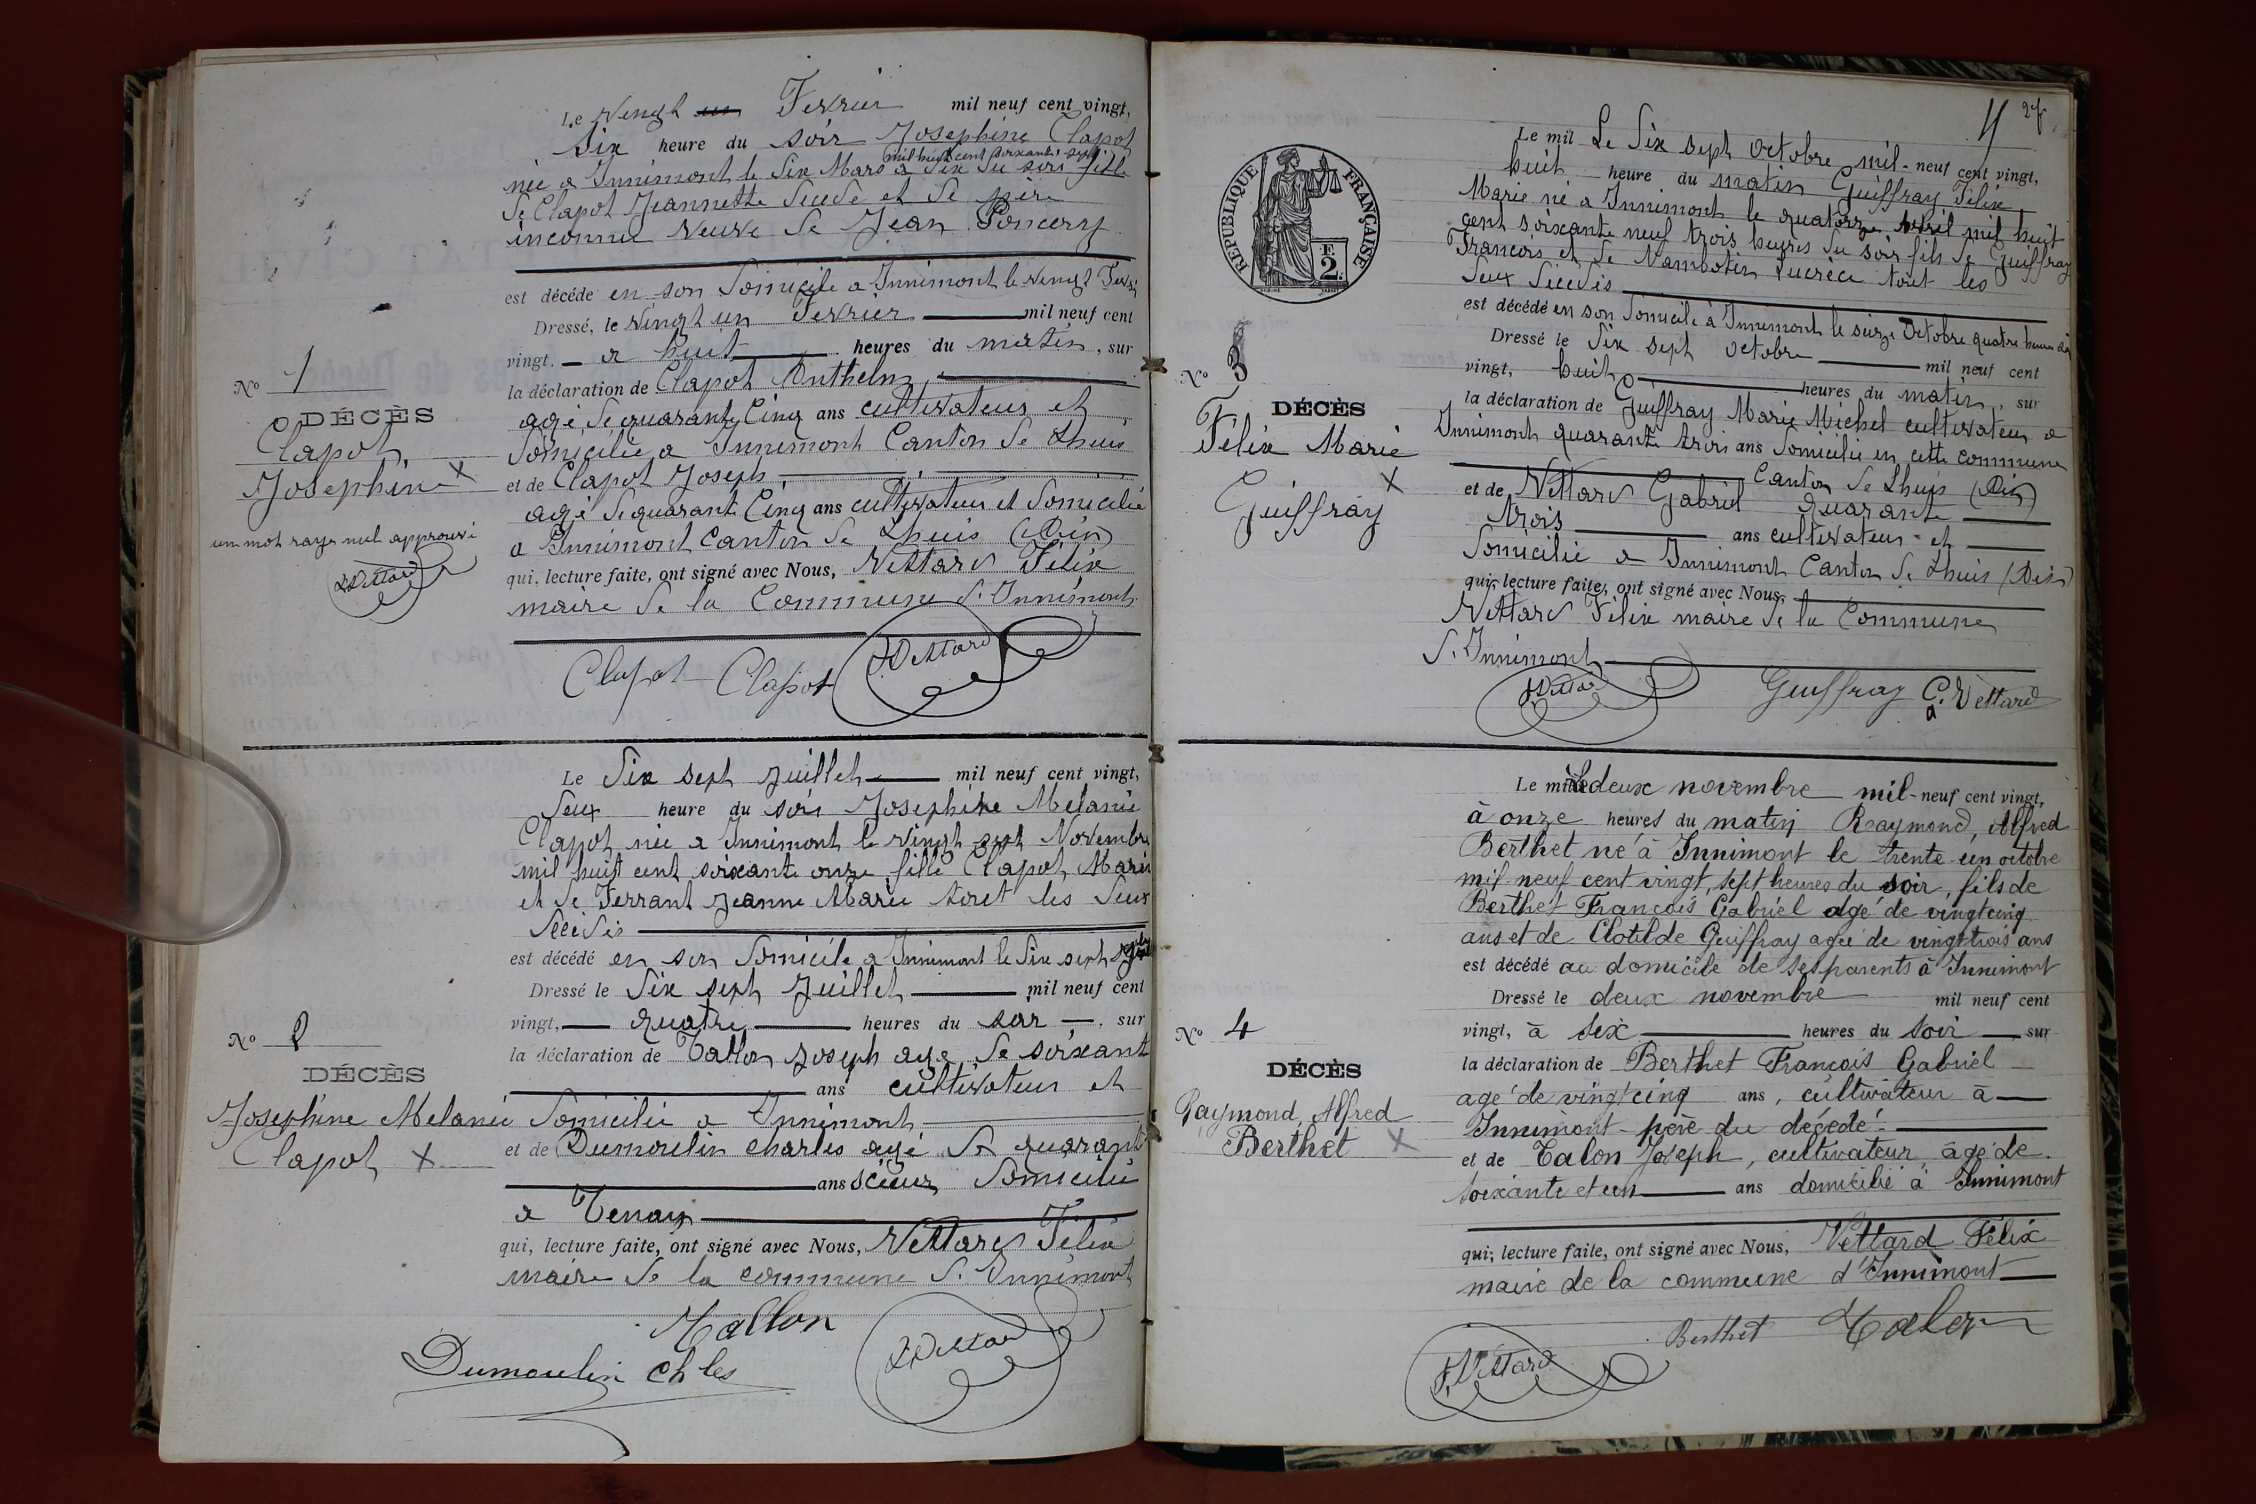 Le vingt un Fevrier mil neuf cent vingt,
six heure du soir Josephine Clapot
mil huit cent soixante sept
née a Innimont le six Mars a six du soir fille
de Clapot Jeannette décédé et de père
inconnu veuve de Jean Poncery
est décédé en son domicile a Innimont le vingt Fevri
Dressé, le vingt un Fevrier mil neuf cent
vingt. a huit heures du matin, sur
No 1
la déclaration de Clapot Anthelm
DÉCÈS
agé de quarante cinq ans cultivateur et
Clapot
domicilié a Innimont Canton de Lhuis
Josephine x
et de Clapot Joseph
agé de quarante cinq ans cultivateur et domicilié
un mot rayé nul approuvé
a Innimont Canton de Lhuis (Ain)
F. Vettard
qui, lecture faite, ont signé avec Nous, Vettard Félix
maire de la Commune d'Innimont
Clapot Clapot F. Vettard
Le dix sept Juillet mil neuf cent vingt,
deux heure du soir Josephine Melanie
Clapot née a Innimont le vingt sept Novembre
mil huit cent soixante onze fille Clapot Marie
et de Ferrant Jeanne Marie tout les deux
décédés
est décédé en son domicile a Innimont le dix sept
Dressé le dix sept Juillet mil neuf cent
vingt, quatre heures du soir, sur
No 2
la déclaration de Tallon Joseph age de soixant
DÉCÈS
ans cultivateur et
Josephine Melanie
domicilié a Innimont
Clapot x
et de Dumoulin Charles agé de quarant
ans scieur domicilié
a Tenay
qui, lecture faite, ont signé avec Nous, Vettard Félix
maire de la commune d'Innimont
Tallon
Dumoulin Chles F. Vettard
4 27
RÉPUBLIQUE FRANÇAISE
2 F.
Le mil Le dix sept Octobre mil-neuf cent vingt,
huit heure du matin Guiffray Félix
Marie né a Innimont le quatorze Avril mil huit
cent soixante neuf trois heures du soir fils de Guiffray
Francois et de Nambotin Lucrèce tout les
deux décédés
est décédé en son domicile à Innimont le seize Octobre quatre heures du
Dressé le dix sept Octobre mil neuf cent
No 3
vingt, huit heures du matin, sur
DÉCÈS
la déclaration de Guiffray Marie Michel cultivateur a
Félix Marie
Innimont quarante trois ans domicilié en cette commune
Guiffray x
Canton de Lhuis (Ain)
et de Vettard Gabriel quarante
trois ans cultivateur et
domicilié a Innimont Canton de Lhuis (Ain)
qui, lecture faite, ont signé avec Nous,
Vettard Félix maire de la Commune
d'Innimont
F. Vettard Guiffray G. Vettard
Le mil Le deux novembre mil-neuf cent vingt,
à onze heures du matin Raymond, Alfred
Berthet né à Innimont le trente-un octobre
mil neuf cent vingt, sept heures du soir, fils de
Berthet François Gabriel agé de vingt cinq
ans et de Clotilde Guiffray agée de vingt trois ans
est décédé au domicile de ses parents à Innimont
Dressé le deux novembre mil neuf cent
No 4
vingt, à six heures du soir sur
DÉCÈS
la déclaration de Berthet François Gabriel
Raymond, Alfred
agé de vingt cinq ans, cultivateur à
Berthet x
Innimont père du décédé
et de Talon Joseph, cultivateur âgé de
soixante et un ans domicilié à Innimont
qui, lecture faite, ont signé avec Nous, Vettard Félix
maire de la commune d'Innimont
F. Vettard Berthet Talon